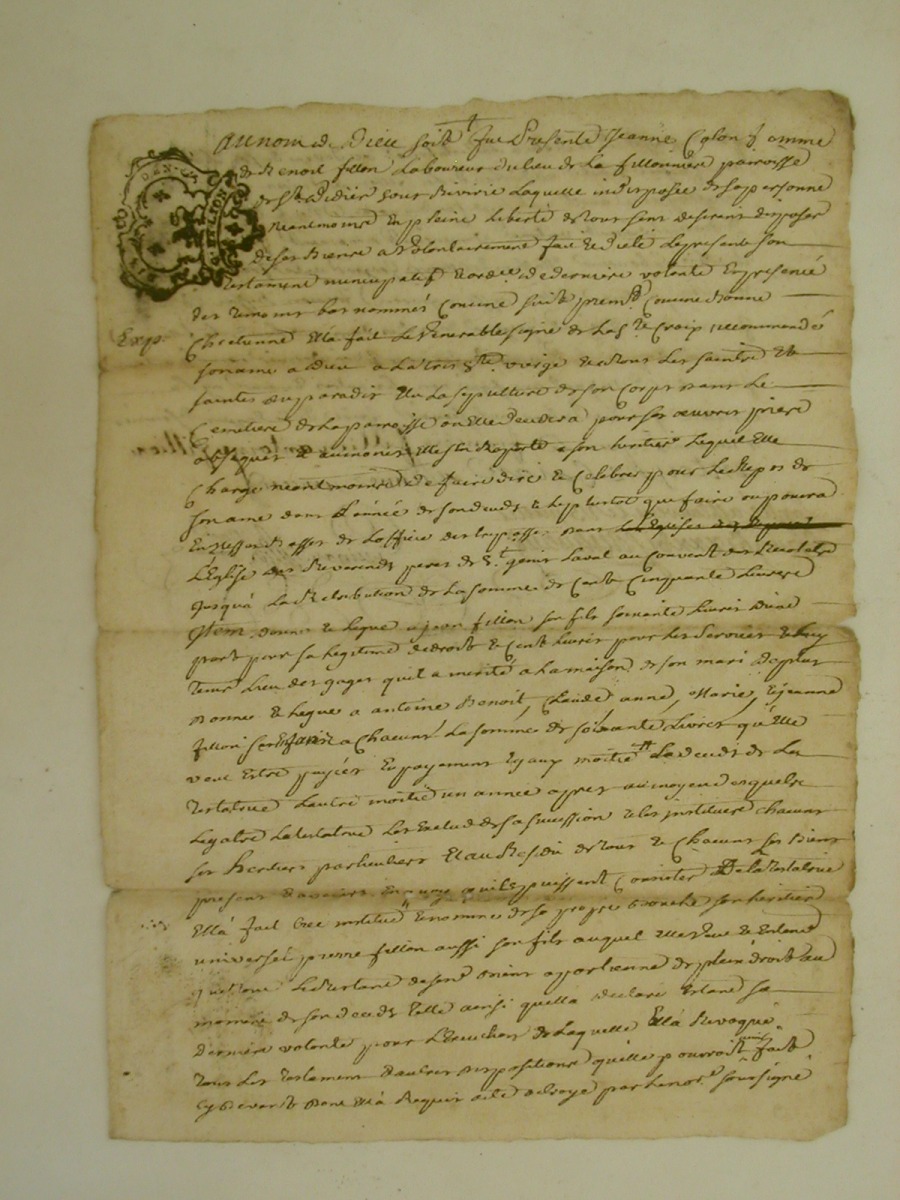 Au nom de Dieu soit fut presente Jeanne Colon femme
de Benoit fillon Laboureur du lieu de La fillonniere paroisse
de St Didier sous Rivirie Laquelle indisposée de sa personne
neantmoins en pleine Liberté de tous sens desirant disposer
de ses Biens a volontairement fait et dicté Le present son
testament nuncupatif et ordce de derniere volonté En presence
des temoins bas nommés Comme suit premt Comme Bonne
Exp.
Chretienne Ella fait le venerable signe de La Ste Croix recommandé
son ame a Dieu a La tres Ste vierge et a tous Les saints et
saintes du paradis Elu La sepulture de son Corps dans Le
Cemetiere de La paroisse ou Elle decedera pour ses œuvres pies
obseques et aumones Elle s'en Raporte a son heritier Lequel Elle
Charge neantmoins de faire dire et Celebrer pour Le Repos de
son ame dans L'année de son deceds et Le plustot que faire ce poura
En Messes Basses de L'office des trepassés dans
L'Eglise des Reverends peres de St genis Laval au Convent des Recolets
jusqu'à La Retribution de La somme de Cent Cinquante Livres
Item donne et Legue a jean fillon son fils soixante Livres
part pour sa Legitime de droit et Cent Livres pour Les services et Luy
tenir Lieu des gages qu'il a merité a La maison de son mari De plus
donne et Legue a antoine Benoit, Claude anne, Marie, et jeanne
fillon ses Enfans a Chacuns La somme de soixante Livres qu'Elle
veut Estre payées En payements Egaux moitié au deceds de La
testatrice L'autre moitié un année apres au moyend desquels
Legats La testatrice Les Exclud de sa succession et Les instituent chacuns
ses heritiers particuliers Et au Residu de tous et Chacuns ses Biens
presents et avenirs En quoy qu'ils puissent Consister De La testatrice
Ella fait Cree institué et nommé de sa propre Bouche son heritier
universel pierre fillon aussi son fils auquel Elle veut et Entend
que tout Le Restant de ses Biens appartienne de plein droit au
moment de son deceds telle ainsi qu'ella declaré Estant sa
derniere volonté pour L'Execution de Laquelle Ella Revoqué
tous Les testaments et autres dispositions qu'elle pourroit avoir fait
Cy devant Dont Ella Requis acte octroyé par Le notre soussigné